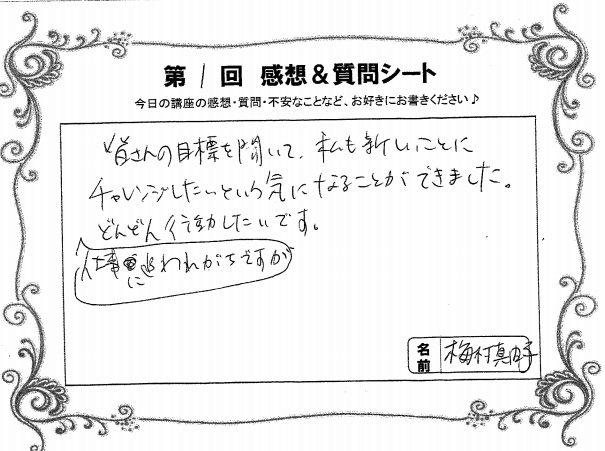 第1回 感想&質問シート
今日の講座の感想・質問・不安なことなど、お好きにお書きください♪
皆さんの目標を聞いて、私も新しいことに
チャレンジしたいという気になることができました。
どんどん行動したいです。
仕事に追われがちですが
名前 梅村真由子